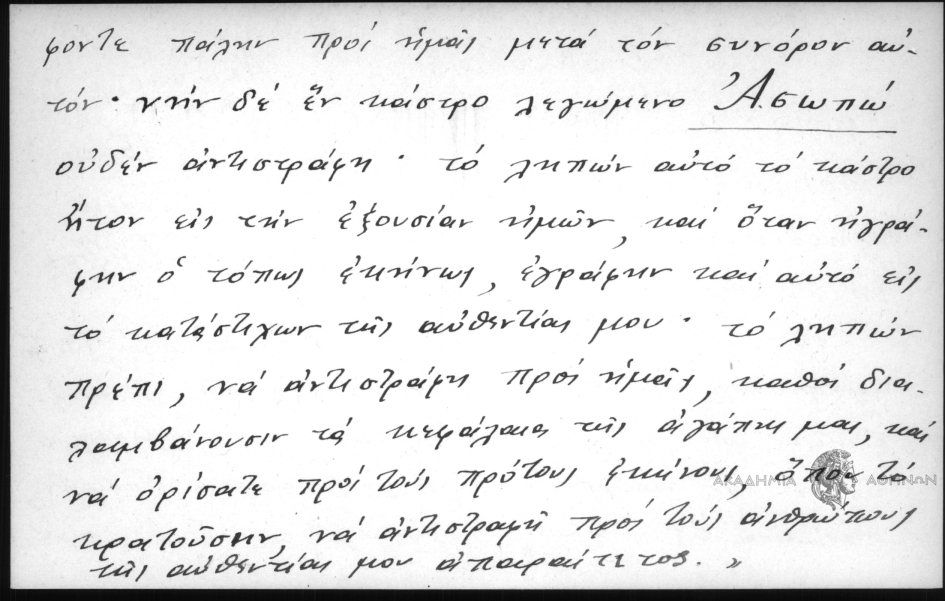 φοντε πάλην πρός ἡμᾶς μετά τόν συνόρον αὐ-
τόν· νῆν δέ ἕν κάστρο λεγώμενο Ἀσωπώ
οὐδέν ἀντιστράφη· τό ληπών αὐτό τό κάστρο
ἦτον εἰς τήν ἐξουσίαν ἡμῶν, καί ὅταν ἠγρά-
φην ὁ τόπως ἐκήνως, ἐγράφην καί αὐτό εἰς
τό κατάστιχων τῆς αὐθεντίας μου· τό ληπών
πρέπι, νά ἀντιστράφη πρός ἡμᾶς, καθός δια-
λαμβάνουσιν τά κεφάλαια τῆς ἀγάπης μας, καί
νά ὁρίσατε πρός τούς πρότους ἐκήνους, ὅπου τό
κρατοῦσην, νά ἀντιστραφῆ πρός τούς ἀνθρώπους
τῆς αὐθεντίας μου ἀπαραίτητος. "
ΑΚΑΔΗΜΙΑ ΑΘΗΝΩΝ